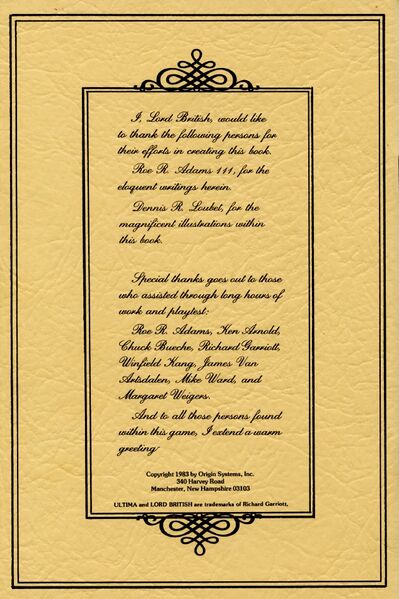 I, Lord British, would like
to thank the following persons for
their efforts in creating this book.
Roe R. Adams 111, for the
eloquent writings herein.
Dennis R. Loubet, for the
magnificent illustrations within
this book.
Special thanks goes out to those
who assisted through long hours of
work and playtest:
Roe R. Adams, Ken Arnold,
Chuck Bueche, Richard Garriott,
Winfield Kang, James Van
Artsdalen, Mike Ward, and
Margaret Weigers.
And to all those persons found
within this game, I extend a warm
greeting
Copyright 1983 by Origin Systems, Inc.
340 Harvey Road
Manchester, New Hampshire 03103
ULTIMA and LORD BRITISH are trademarks of Richard Garriott,